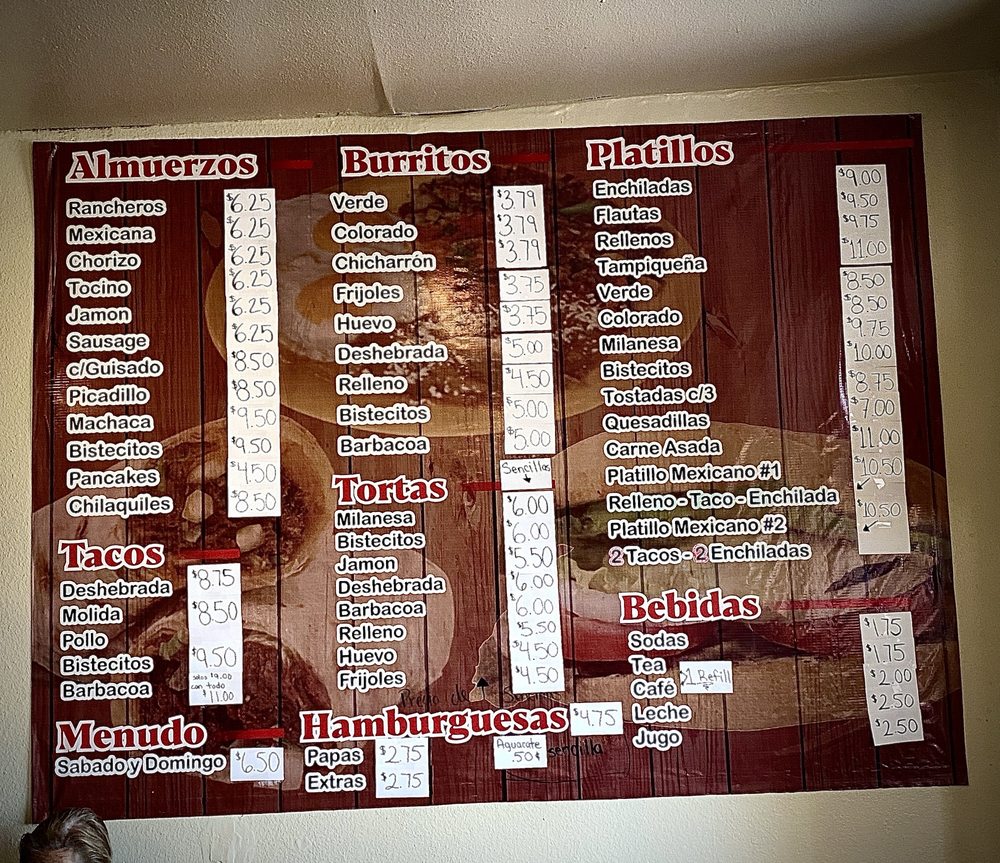 Almuerzos
Rancheros $6.25
Mexicana $6.25
Chorizo $6.25
Tocino $6.25
Jamon $6.25
Sausage $6.25
c/Guisado $8.50
Picadillo $8.50
Machaca $9.50
Bistecitos $9.50
Pancakes $4.50
Chilaquiles $8.50
Tacos
Deshebrada $8.75
Molida $8.50
Pollo
Bistecitos $9.50
Barbacoa solos $9.00
con todo
$11.00
Menudo
Sabado y Domingo $6.50
Burritos
Verde $3.79
Colorado $3.79
Chicharrón $3.79
Frijoles $3.75
Huevo $3.75
Deshebrada $5.00
Relleno $4.50
Bistecitos $5.00
Barbacoa $5.00
Tortas Sencillas
Milanesa $6.00
Bistecitos $6.00
Jamon $5.50
Deshebrada $6.00
Barbacoa $6.00
Relleno $5.50
Huevo $4.50
Frijoles $4.50
Precio de
Hamburguesas $4.75
sencilla
Papas $2.75
Extras $2.75
Aguacate
.50¢
Platillos
Enchiladas $9.00
Flautas $9.50
Rellenos $9.75
Tampiqueña $11.00
Verde $8.50
Colorado $8.50
Milanesa $9.75
Bistecitos $10.00
Tostadas c/3 $8.75
Quesadillas $7.00
Carne Asada $11.00
Platillo Mexicano #1 $10.50
Relleno - Taco - Enchilada
Platillo Mexicano #2 $10.50
2 Tacos - 2 Enchiladas
Bebidas
Sodas $1.75
Tea $1.75
Café 1 Refill $2.00
Leche $2.50
Jugo $2.50